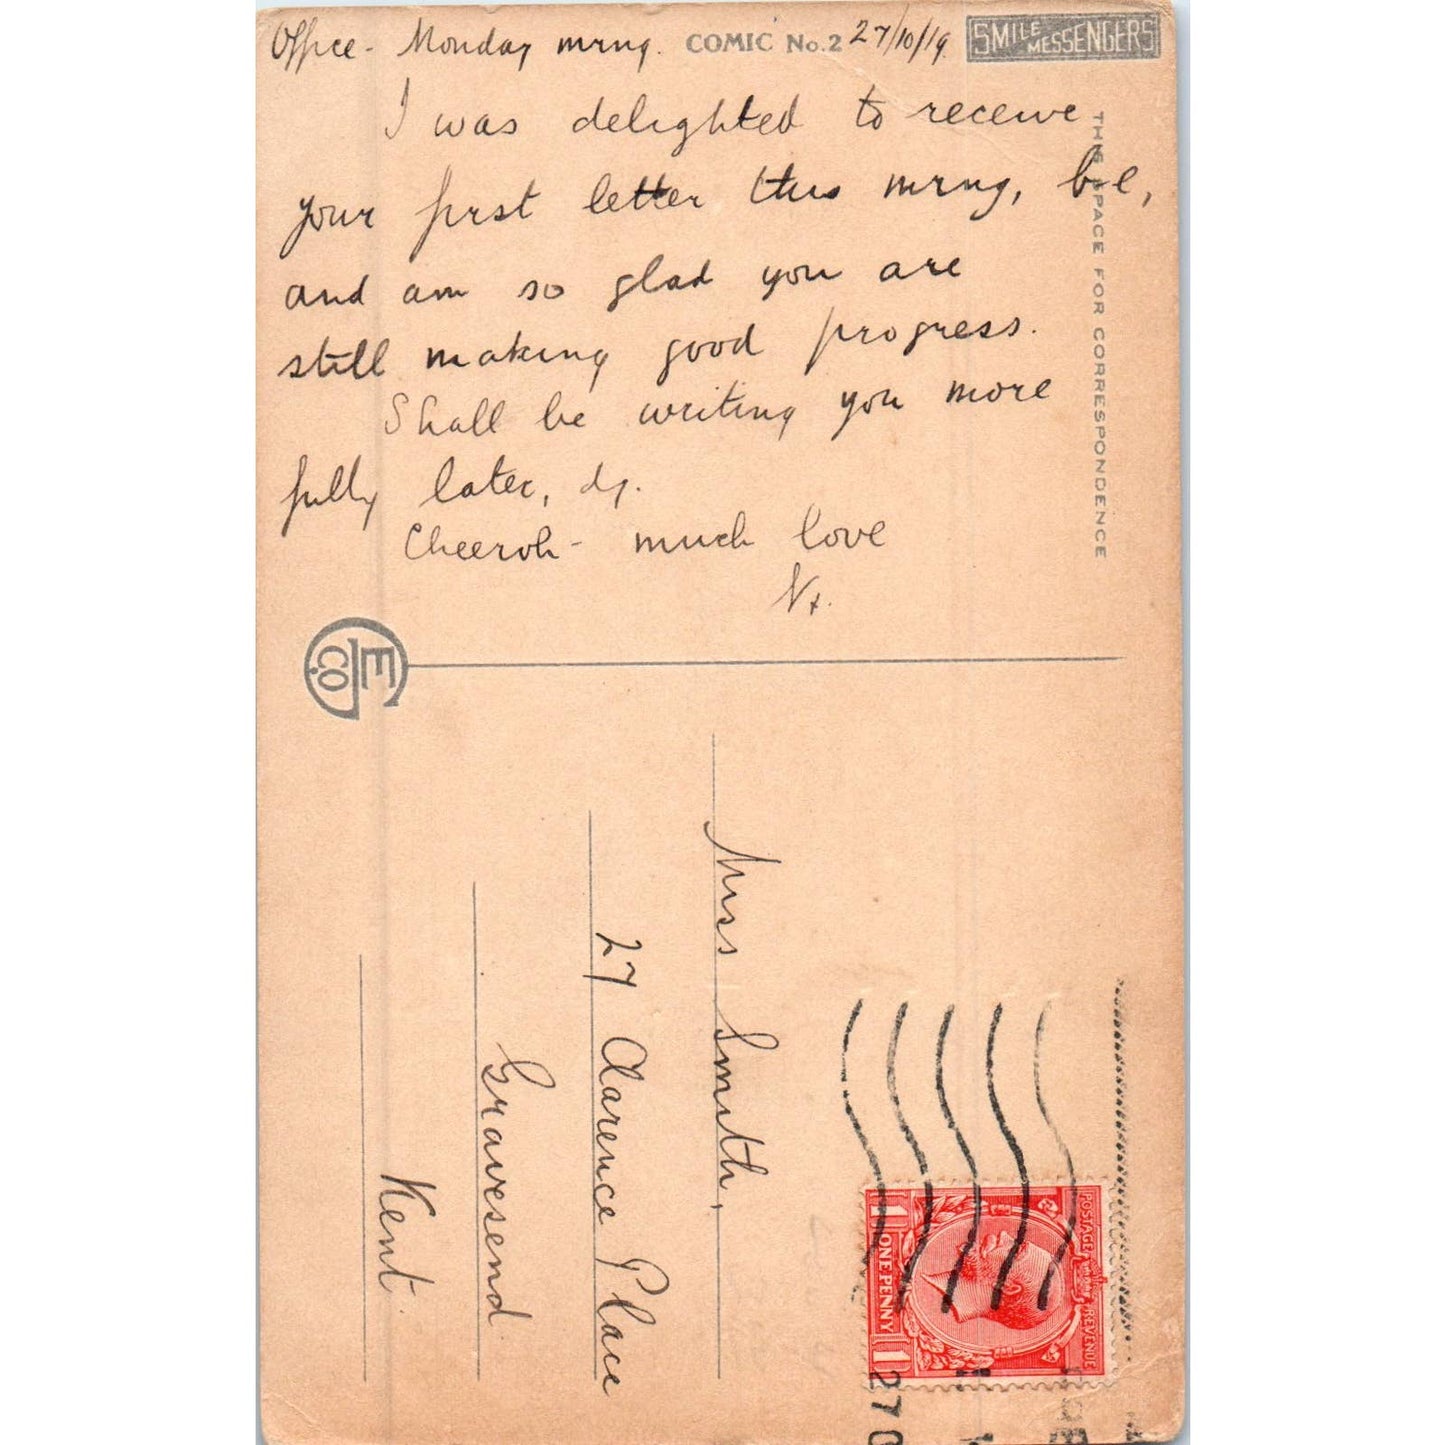 Office - Monday mrng. COMIC No. 2 27/10/19. SMILE MESSENGERS
I was delighted to receive
your first letter this mrng,
and am so glad you are
still making good progress.
Shall be writing you more
fully later, dy.
Cheeroh - much love
THIS SPACE FOR CORRESPONDENCE
E CO
Miss Smith,
27 Clarence Place
Gravesend
Kent.
POSTAGE REVENUE
1 ONE PENNY 1
27 O